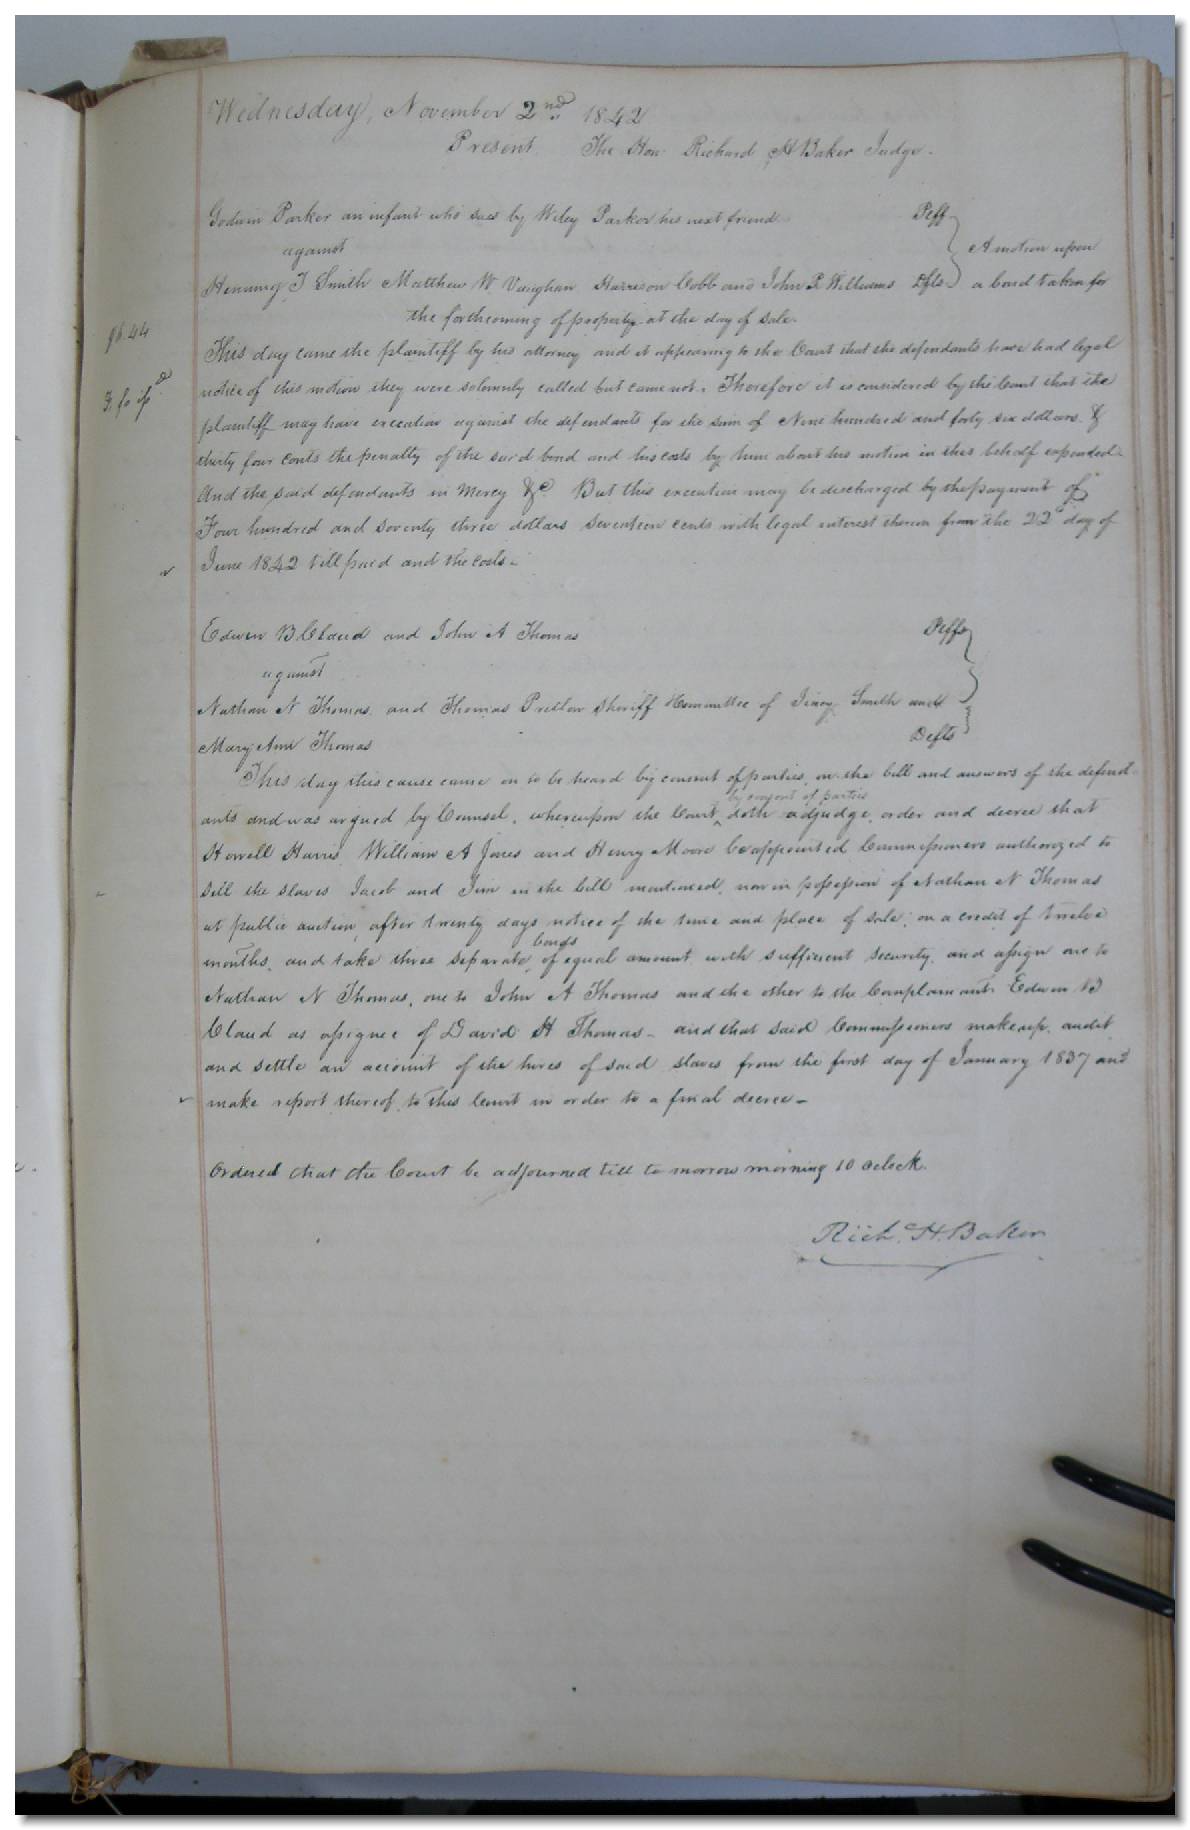 Wednesday, November 2nd 1842
Present The Hon Richard H Baker Judge.
Godwin Parker an infant who sues by Wiley Parker his next friend Pltff
against
A motion upon
Henning T Smith Matthew W Vaughan Harrison Cobb and John P Williams Dfts a bond taken for
the forthcoming of property at the day of sale.
This day came the plaintiff by his attorney and it appearing to the Court that the defendants have had legal
notice of this motion they were solemnly called but came not. Therefore it is considered by the Court that the
plaintiff may have execution against the defendants for the sum of Nine hundred and forty six dollars &
thirty four cents the penalty of the said bond and his costs by him about his motion in this behalf expended.
And the said defendants in Mercy &c But this execution may be discharged by the payment of
Four hundred and seventy three dollars seventeen cents with legal interest thereon from the 22d day of
June 1842 till paid and the costs.
Edwin B Claud and John A Thomas Pltffs
against
Nathan N Thomas, and Thomas Pretlow Sheriff Committee of Smith and
Mary Ann Thomas Defts
This day this cause came on to be heard by consent of parties, on the bill and answers of the defend-
by consent of parties
ants and was argued by Counsel, whereupon the Court doth adjudge, order and decree that
Howell Harris, William A Jones and Henry Moore be appointed Commissioners authorized to
sell the slaves Jacob and Jim in the bill mentioned, now in possession of Nathan N Thomas
at public auction, after twenty days notice of the time and place of sale, on a credit of twelve
bonds
months, and take three separate of equal amount with sufficient security, and assign one to
Nathan N Thomas, one to John A Thomas and the other to the Complainant Edwin B
Claud as assignee of David H Thomas - and that said Commissioners make up, audit
and settle an account of the hires of said slaves from the first day of January 1837 and
make report thereof to this Court in order to a final decree -
Ordered that the Court be adjourned till to morrow morning 10 oclock.
Rich. H. Baker